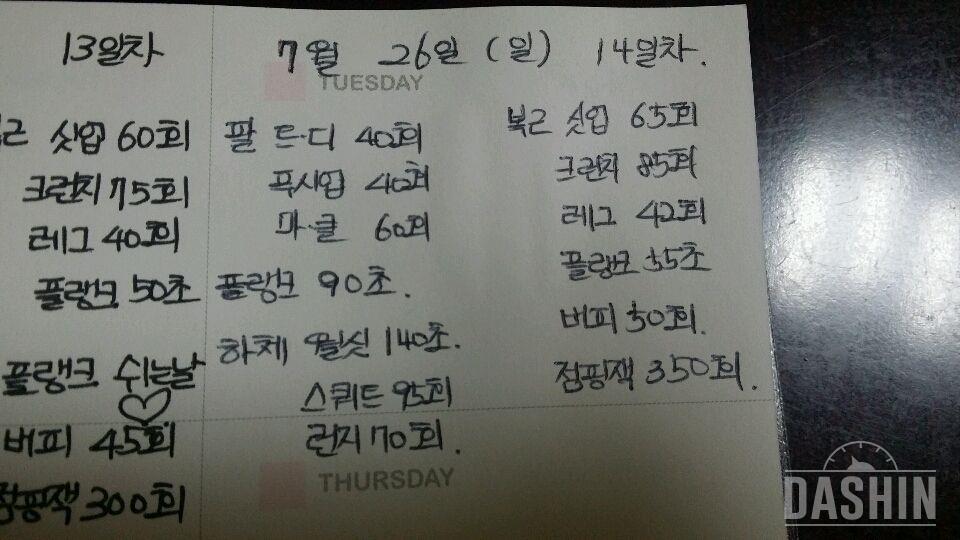 13일차 7월 26일 (일) 14일차.
TUESDAY
싯업 60회
크런치 75회
레그 40회
플랭크 50초
플랭크 쉬는날
버피 45회
점핑잭 300회
팔 트·디 40회
푸시업 40회
마·클 60회
플랭크 90초.
하체 월싯 140초.
스쿼트 95회
런지 70회.
THURSDAY
복근 싯업 65회
크런치 85회
레그 42회
플랭크 55초
버피 50회.
점핑잭 350회.
DASHIN